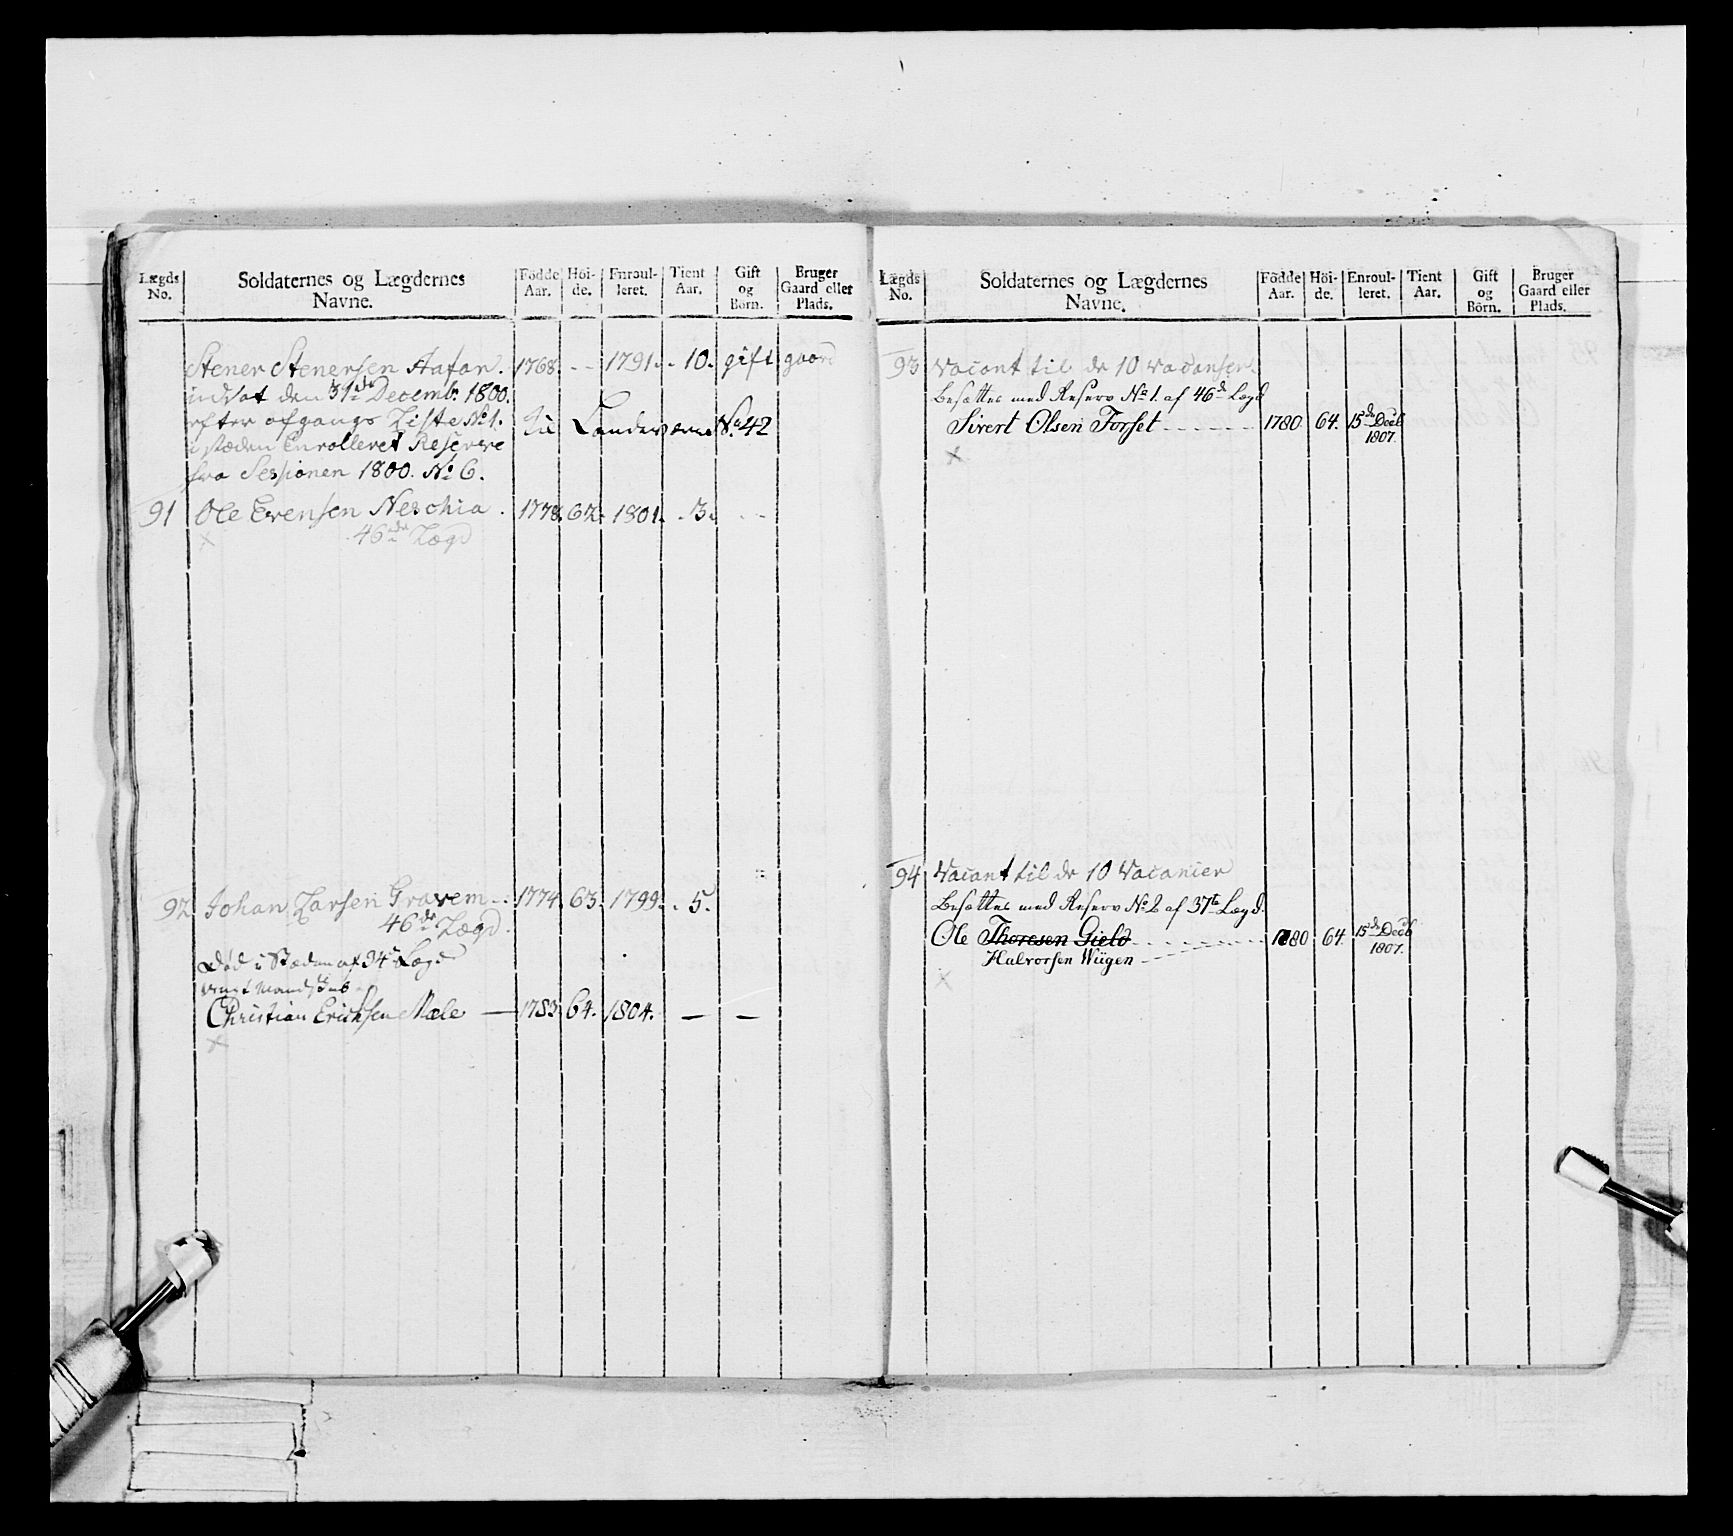 Lægds No. | Soldaternes og Lægdernes Navne. | Födde Aar. | Höi-de. | Enroul-leret. | Tient Aar. | Gift og Börn. | Bruger Gaard eller Plads.
Stener Stenersen Aafar. 1768 - - 1791. 10. gift gaard
indsat den 31de Decemb. 1800.
efter afgangs Liste No 1. Til Landeværnet No 42
i stæden Enrolleret Reserve
fra Sessionen 1800. No 6.
91 Ole Evensen Neschia. 1778. 62. 1801. 3. - -
x 46de Lægd
92 Johan Larsen Gravem - 1774. 63. 1799. 5.
46de Lægd.
Død i Stæden af 34te Lægd
ungt Mandskab
Christian Erichsen Mæle — 1783. 64. 1804. — —
x
Lægds No. | Soldaternes og Lægdernes Navne. | Födde Aar. | Höi-de. | Enroul-leret. | Tient Aar. | Gift og Börn. | Bruger Gaard eller Plads.
93 Vacant til de 10 vacanser
Besættes med Reserv No 1. af 46de Lægd
Sivert Olsen Forset - - - - - - 1780 64. 15de Decb 1807.
x
94 Vacant til de 10 Vacancier
Besættes med Reserv No 2 af 37te Lægd.
Ole Thoresen Gield - - - - - - 1780 64. 15de Decb 1807.
Halvorsen Wiigen - - - -
x